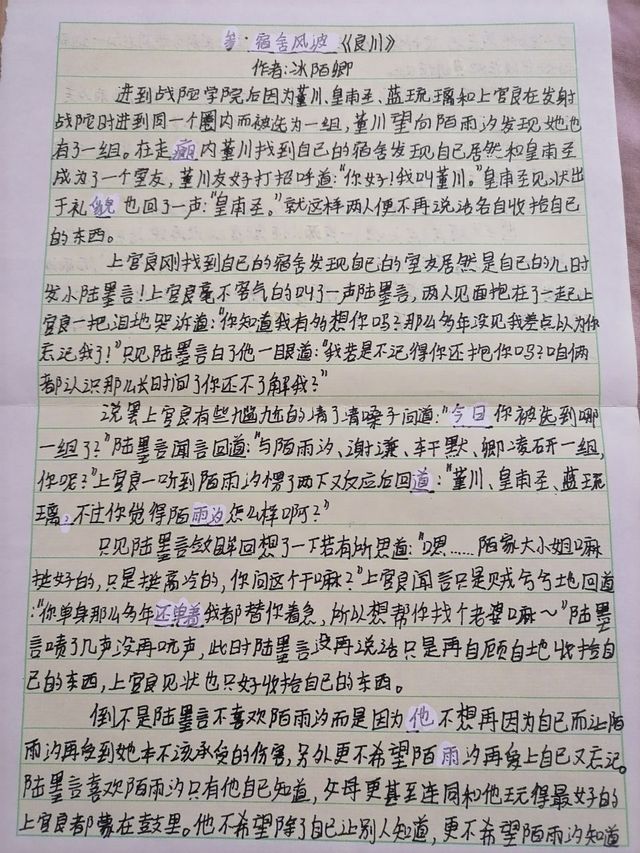 等·宿舍风波《良川》
作者:冰陌卿
进到战陀学院后因为堇川、皇甫圣、蓝琉璃和上官良在发射
战陀时进到同一个圈内而被选为一组,堇川望向陌雨汐发现她也
有了一组。在走廊内堇川找到自己的宿舍发现自己居然和皇甫圣
成为了一个室友,堇川友好打招呼道:“你好!我叫堇川。”皇甫圣见状出
于礼貌也回了一声:“皇甫圣。”就这样两人便不再说话各自收拾自己
的东西。
上官良刚找到自己的宿舍发现自己的室友居然是自己的儿时
发小陆墨言!上官良毫不客气的叫了一声陆墨言,两人见面抱在了一起上
官良一把泪地哭诉道:“你知道我有多想你吗?那么多年没见我差点以为你
忘记我了!”只见陆墨言白了他一眼道:“我若是不记得你还抱你吗?咱俩
都认识那么长时间了你还不了解我?”
说罢上官良有些尴尬的清了清嗓子问道:“今日你被选到哪
一组了?”陆墨言闻言回道:“与陌雨汐、谢谦、轩默、卿凌研一组,
你呢?”上官良一听到陌雨汐愣了两下又反应后回道:“堇川、皇甫圣、蓝琉
璃。不过你觉得陌雨汐怎么样啊?”
只见陆墨言敛眸回想了一下若有所思道:“嗯……陌家大小姐嘛
挺好的,只是挺高冷的,你问这个干嘛?”上官良闻言只是贼兮兮地回道
:“你单身那么多年还单着我都替你着急,所以想帮你找个老婆嘛~”陆墨
言啧了几声没再吭声,此时陆墨言没再说话只是再自顾自地收拾自
己的东西,上官良见状也只好收拾自己的东西。
倒不是陆墨言不喜欢陌雨汐而是因为他不想再因为自己而让陌
雨汐再受到她本不该承受的伤害,另外更不希望陌雨汐再爱上自己又忘记。
陆墨言喜欢陌雨汐只有他自己知道,父母更甚至连同和他玩得最好的
上官良都蒙在鼓里。他不希望除了自己让别人知道,更不希望陌雨汐知道